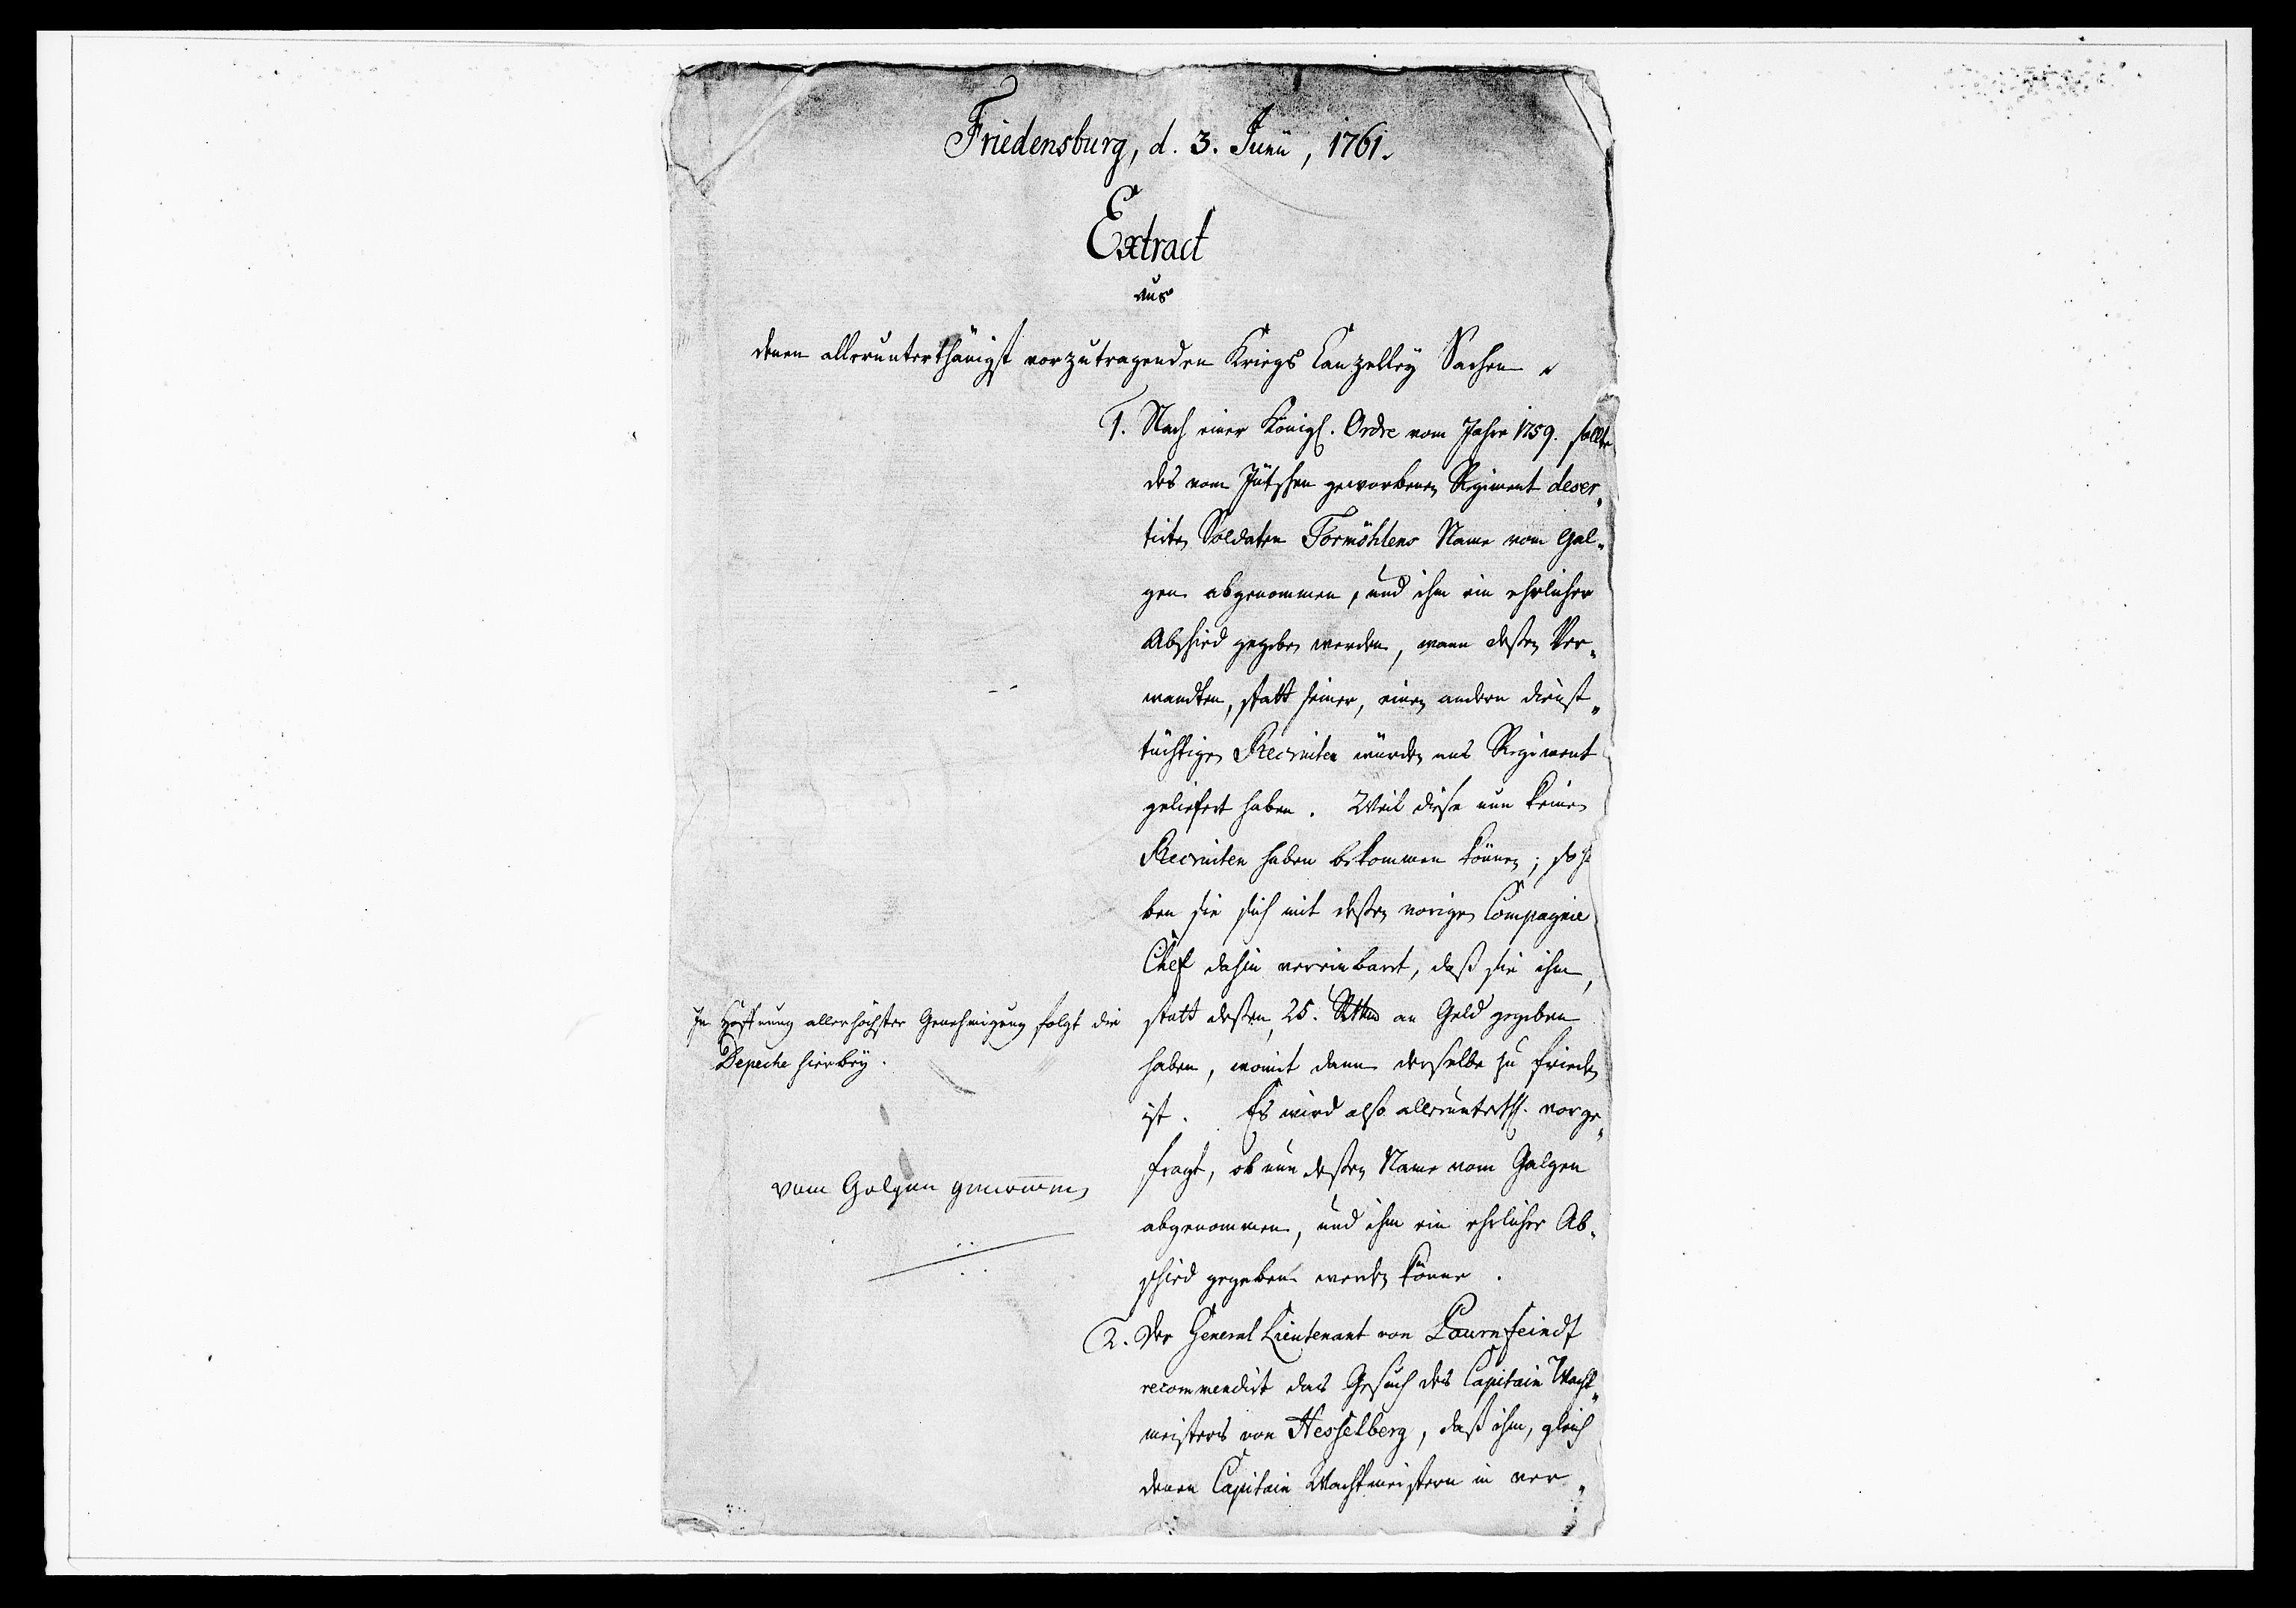 Friedensburg, d. 3. Junii, 1761.
Extract
aus
denen allerunterthänigst vorzutragenden Kriegs Canzelley Sachen
1. Nach einer Königl. Ordre vom Jahre 1759. sollte
des vom Jütschen geworbenen Regiment deser„
tirten Soldaten Formöhlens Name vom Gal„
gen abgenommen, und ihm ein ehrlicher
Abschied gegeben werden, wann deßen Ver„
wandten, statt seiner, einen andern dienst„
tüchtigen Recruiten würden ans Regiment
geliefert haben. Weil diese nun keine
Recruiten haben bekommen können; so ha
ben sie sich mit deßen vorigen Compagnie
Chef dahin vereinbart, daß sie ihm,
statt deßen, 25. Rthlr an Geld gegeben
haben, womit dann derselbe zu frieden
ist. Es wird also allerunterth. vorge„
fragt, ob nun deßen Name vom Galgen
abgenommen, und ihm ein ehrlicher Ab„
schied gegeben werden könne.
In Hoffnung allerhöchster Genehmigung folgt die
Depeche hierbey.
vom Galgen genommen
2. Der General Lieutenant von Laurnfeindt
recommendirt das Gesuch des Capitain Wacht„
meisters von Hesselberg, daß ihm, gleich
denen Capitain Wachtmeistern in vor„